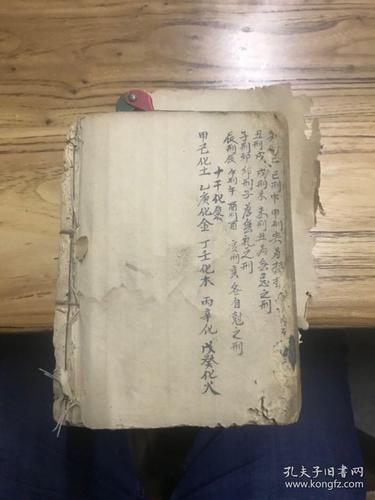 巳刑申 申刑寅 為
丑刑戌 戌刑未 未刑丑 為無恩之刑
子刑卯 卯刑子 為無礼之刑
辰刑辰 午刑午 酉刑酉 亥刑亥 各自刑之刑
十干化象
甲己化土 乙庚化金 丁壬化木 丙辛化 戊癸化火
孔夫子旧书网
www.kongfz.com